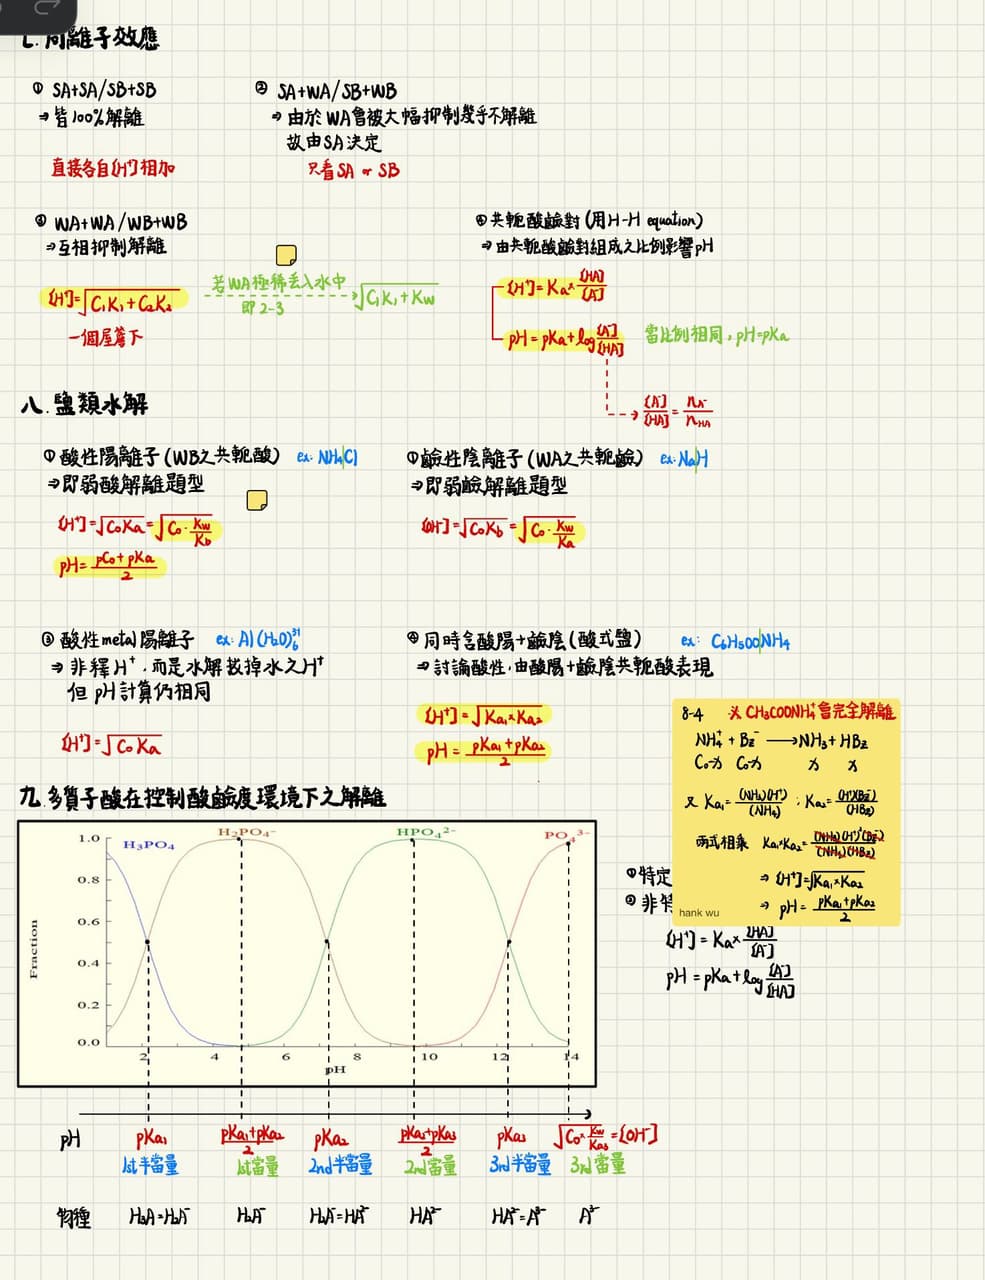 七. 同離子效應
① SA+SA/SB+SB
→ 皆100%解離
直接各自[H⁺]相加
② SA+WA/SB+WB
→ 由於WA會被大幅抑制幾乎不解離
故由SA決定
只看SA or SB
③ WA+WA/WB+WB
→ 互相抑制解離
[H⁺]=√C₁K₁+C₂K₂
一個屋簷下
若WA極稀丟入水中
即2-3
√C₁K₁+Kw
④ 共軛酸鹼對(用H-H equation)
→ 由共軛酸鹼對組成之比例影響pH
[H⁺]=Ka×[HA]/[A⁻]
pH=pKa+log[A⁻]/[HA]
當比例相同,pH=pKa
[A⁻]/[HA]=nA⁻/nHA
八. 鹽類水解
① 酸性陽離子(WB之共軛酸) ex: NH₄Cl
→ 即弱酸解離題型
[H⁺]=√CoKa=√Co·Kw/Kb
pH=pCo+pKa/2
① 鹼性陰離子(WA之共軛鹼) ex: NaH
→ 即弱鹼解離題型
[OH⁻]=√CoKb=√Co·Kw/Ka
③ 酸性metal陽離子 ex: Al(H₂O)₆³⁺
→ 非釋H⁺,而是水解放掉水之H⁺
但pH計算仍相同
[H⁺]=√CoKa
④ 同時含酸陽+鹼陰(酸式鹽) ex: C₆H₅OONH₄
→ 討論酸性,由酸陽+鹼陰共軛酸表現
[H⁺]=√Ka₁×Ka₂
pH=pKa₁+pKa₂/2
8-4 ※ CH₃COONH₄⁺會完全解離
NH₄⁺+Bz⁻→NH₃+HBz
Co-x Co-x x x
又 Ka₁=(NH₃)(H⁺)/(NH₄), Ka₂=(H⁺)(Bz⁻)/(HBz)
兩式相乘 Ka₁×Ka₂=(NH₃)(H⁺)²(Bz⁻)/(NH₄)(HBz)
→ [H⁺]=√Ka₁×Ka₂
→ pH=pKa₁+pKa₂/2
hank wu
九. 多質子酸在控制酸鹼度環境下之解離
① 特定
② 非特
[H⁺]=Ka×[HA]/[A⁻]
pH=pKa+log[A⁻]/[HA]
H₃PO₄ H₂PO₄⁻ HPO₄²⁻ PO₄³⁻
Fraction
1.0
0.8
0.6
0.4
0.2
0.0
2 4 6 8 10 12 14
pH
pH pKa₁ pKa₁+pKa₂/2 pKa₂ pKa₂+pKa₃/2 pKa₃ √Co×Kw/Ka₃=[OH⁻]
1st半當量 1st當量 2nd半當量 2nd當量 3rd半當量 3rd當量
物種 H₃A=H₂A⁻ H₂A⁻ H₂A⁻=HA²⁻ HA²⁻ HA²⁻=A³⁻ A³⁻